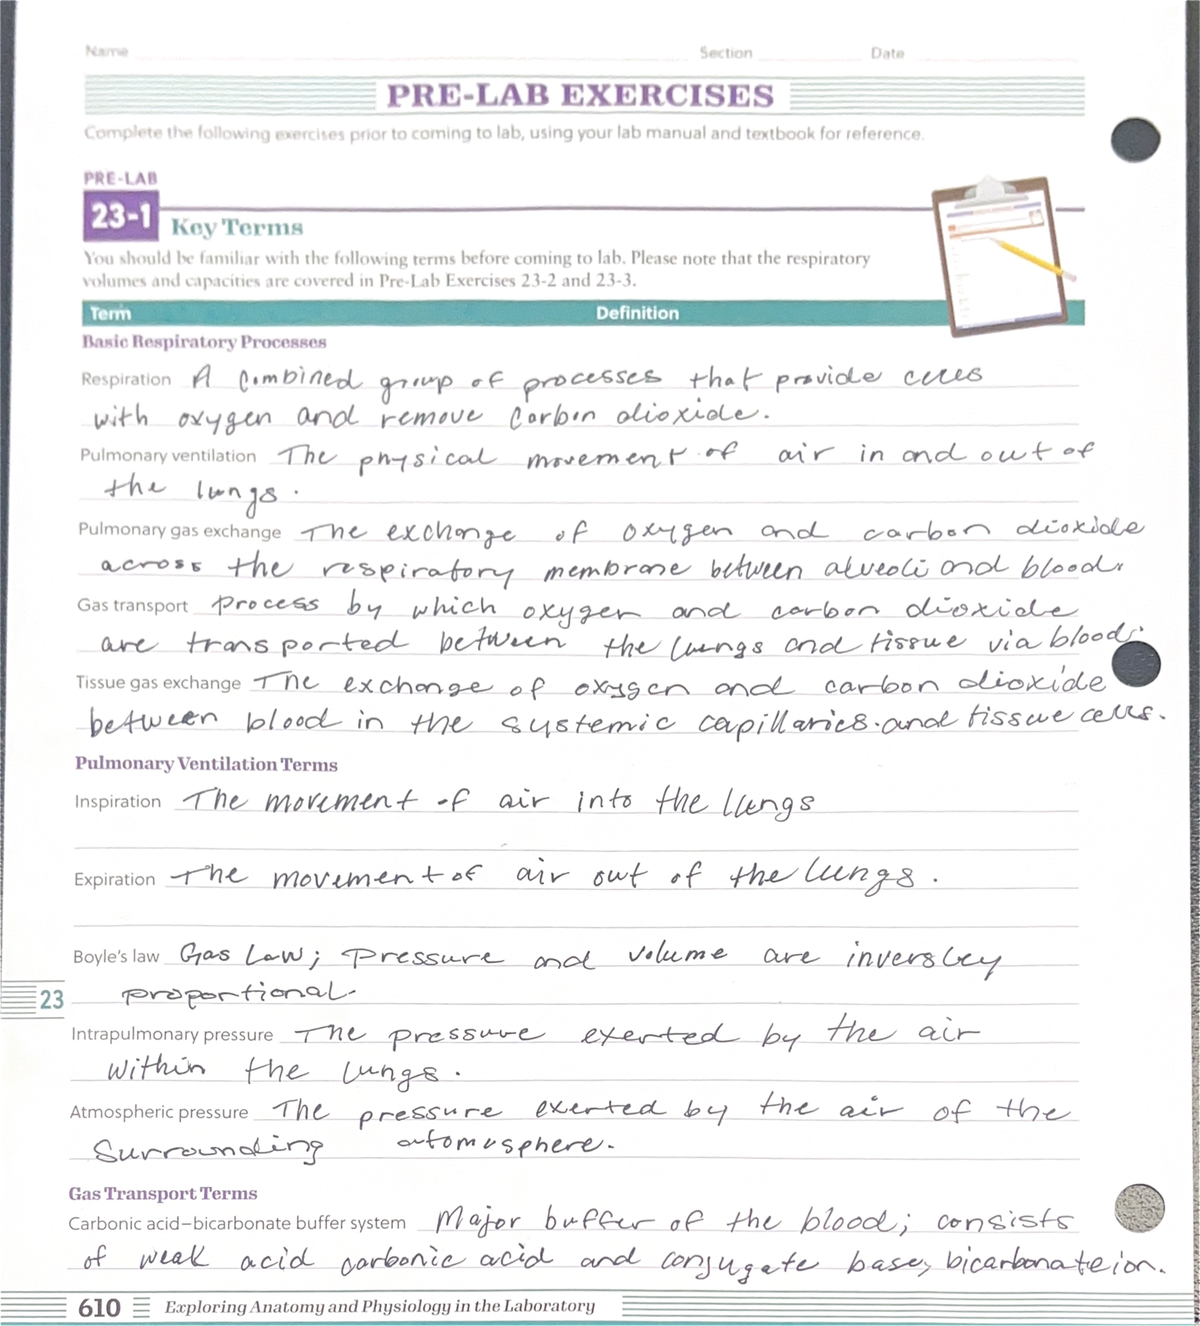 Name Section Date
PRE-LAB EXERCISES
Complete the following exercises prior to coming to lab, using your lab manual and textbook for reference.
PRE-LAB
23-1 Key Terms
You should be familiar with the following terms before coming to lab. Please note that the respiratory
volumes and capacities are covered in Pre-Lab Exercises 23-2 and 23-3.
Term Definition
Basic Respiratory Processes
Respiration A combined group of processes that provide cells
with oxygen and remove carbon dioxide.
Pulmonary ventilation The physical movement of air in and out of
the lungs.
Pulmonary gas exchange The exchange of oxygen and carbon dioxide
across the respiratory membrane between alveoli and blood.
Gas transport process by which oxygen and carbon dioxide
are transported between the lungs and tissue via blood.
Tissue gas exchange The exchange of oxygen and carbon dioxide
between blood in the systemic capillaries and tissue cells.
Pulmonary Ventilation Terms
Inspiration The movement of air into the lungs
Expiration The movement of air out of the lungs.
Boyle's law Gas Law; Pressure and volume are inversley
proportional.
23
Intrapulmonary pressure The pressure exerted by the air
within the lungs.
Atmospheric pressure The pressure exerted by the air of the
Surrounding automusphere.
Gas Transport Terms
Carbonic acid–bicarbonate buffer system Major buffer of the blood; consists
of weak acid carbonic acid and conjugate base, bicarbonate ion.
610 Exploring Anatomy and Physiology in the Laboratory